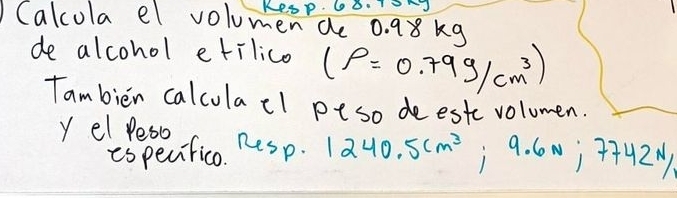 Resp. 68.45kg
) Calcula el volumen de 0.98 kg
de alcohol etílico (ρ= 0.79g/cm³)
También calcula el peso de este volumen.
y el Peso
específico. Resp. 1240.5cm³ ; 9.6N ; 7742N/